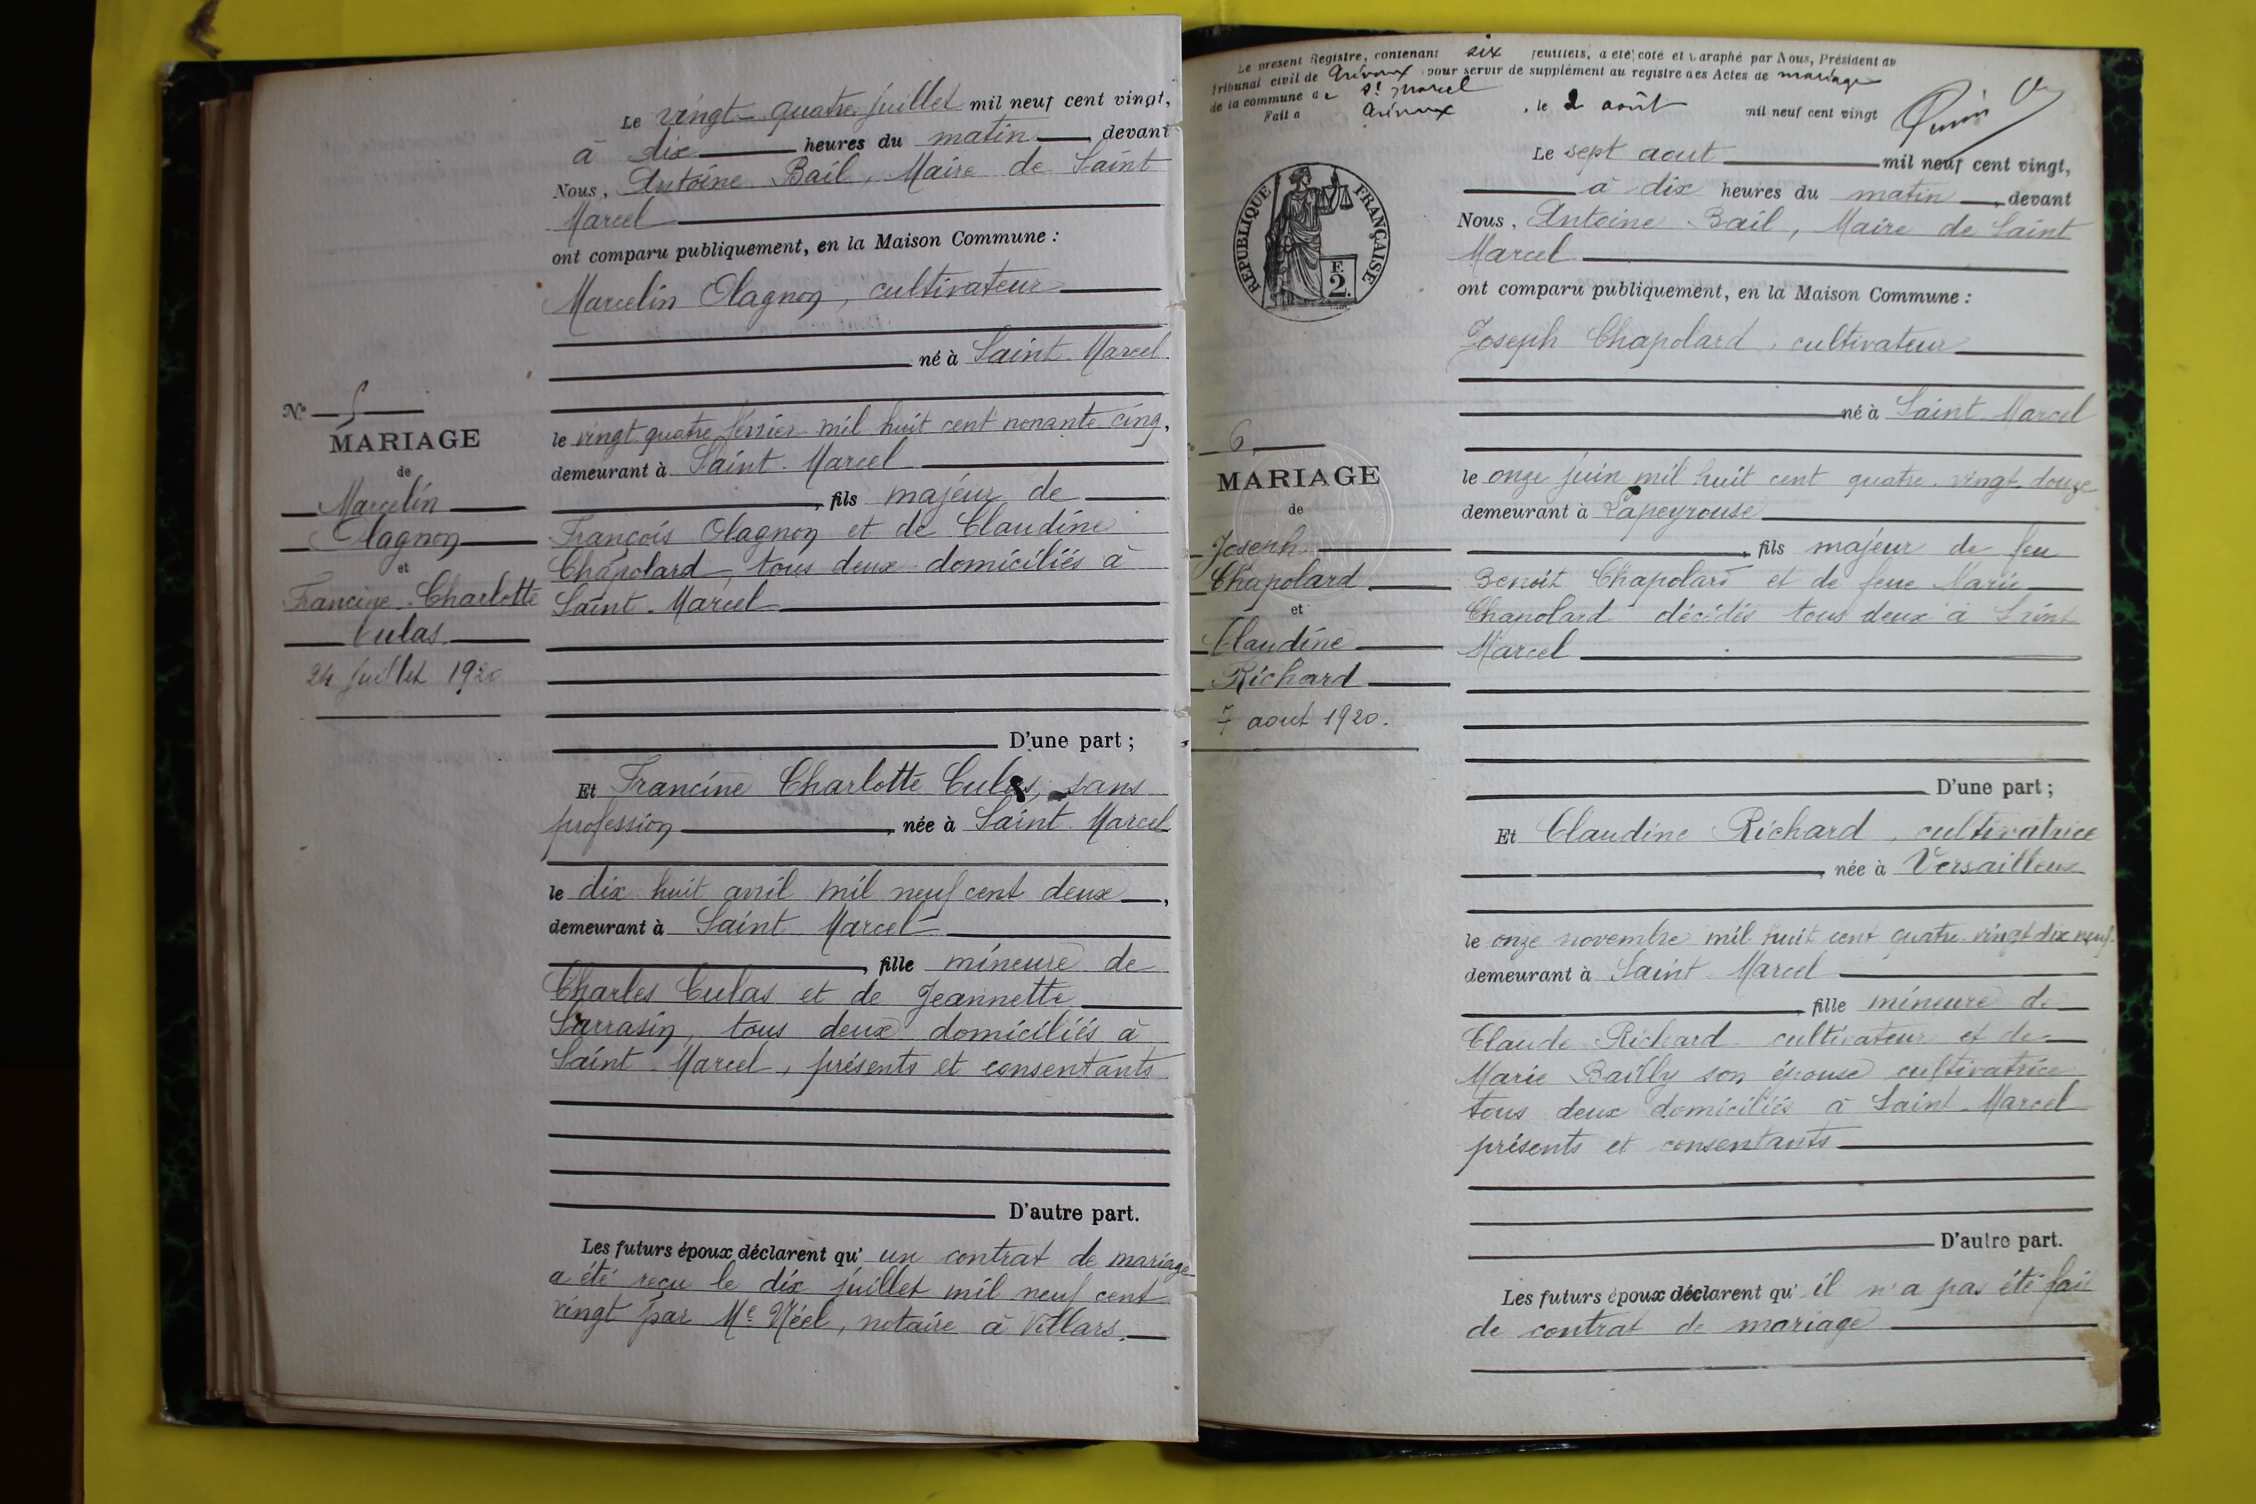 Le vingt-quatre juillet mil neuf cent vingt,
à dix heures du matin, devant
Nous, Antoine Bail, Maire de Saint
Marcel
ont comparu publiquement, en la Maison Commune :
Marcelin Olagnon, cultivateur
né à Saint-Marcel
le vingt quatre février mil huit cent nonante cinq,
demeurant à Saint-Marcel
, fils majeur de
François Olagnon et de Claudine
Chapolard, tous deux domiciliés à
Saint-Marcel
D'une part ;
Et Francine Charlotte Culas, sans
profession, née à Saint-Marcel
le dix huit avril mil neuf cent deux,
demeurant à Saint Marcel
, fille mineure de
Charles Culas et de Jeannette
Sarrasin, tous deux domiciliés à
Saint-Marcel, présents et consentants
D'autre part.
Les futurs époux déclarent qu'un contrat de mariage
a été reçu le dix juillet mil neuf cent
vingt par Me Néel, notaire à Villars.
No 5
MARIAGE
de
Marcelin
Olagnon
et
Francine Charlotte
Culas
24 juillet 1920
Le présent Registre, contenant six feuillets, a été coté et paraphé par Nous, Président du
Tribunal civil de Trévoux pour servir de supplément au registre des Actes de mariage
de la commune de St Marcel
Fait a Trévoux, le 2 août mil neuf cent vingt
REPUBLIQUE FRANÇAISE
E
2.
Le sept aout mil neuf cent vingt,
à dix heures du matin, devant
Nous, Antoine Bail, Maire de Saint
Marcel
ont comparu publiquement, en la Maison Commune :
Joseph Chapolard, cultivateur
né à Saint-Marcel
le onze juin mil huit cent quatre-vingt douze
demeurant à Lapeyrouse
, fils majeur de feu
Benoit Chapolard et de feue Marie
Chapolard décédés tous deux à Saint
Marcel
D'une part ;
Et Claudine Richard, cultivatrice
, née à Versailleux
le onze novembre mil huit cent quatre-vingt dix neuf
demeurant à Saint-Marcel
, fille mineure de
Claude Richard cultivateur et de
Marie Bailly son épouse cultivatrice
tous deux domiciliés à Saint-Marcel
présents et consentants
D'autre part.
Les futurs époux déclarent qu'il n'a pas été fait
de contrat de mariage
6
MARIAGE
de
Joseph
Chapolard
et
Claudine
Richard
7 aout 1920.